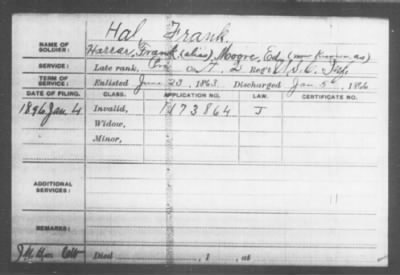 Hal, Frank
NAME OF SOLDIER: Harrar, Frank (alias) Moore, Edy (now known as)
SERVICE: Late rank, Pvt Co. F, 2 Reg't U.S.C. Inf.
TERM OF SERVICE: Enlisted June 23, 1863 Discharged Jan 5", 1866
DATE OF FILING. CLASS. APPLICATION NO. LAW. CERTIFICATE NO.
1896 Jan. 4 Invalid, 1173864 J
Widow,
Minor,
ADDITIONAL SERVICES:
REMARKS:
Died , 1 , at